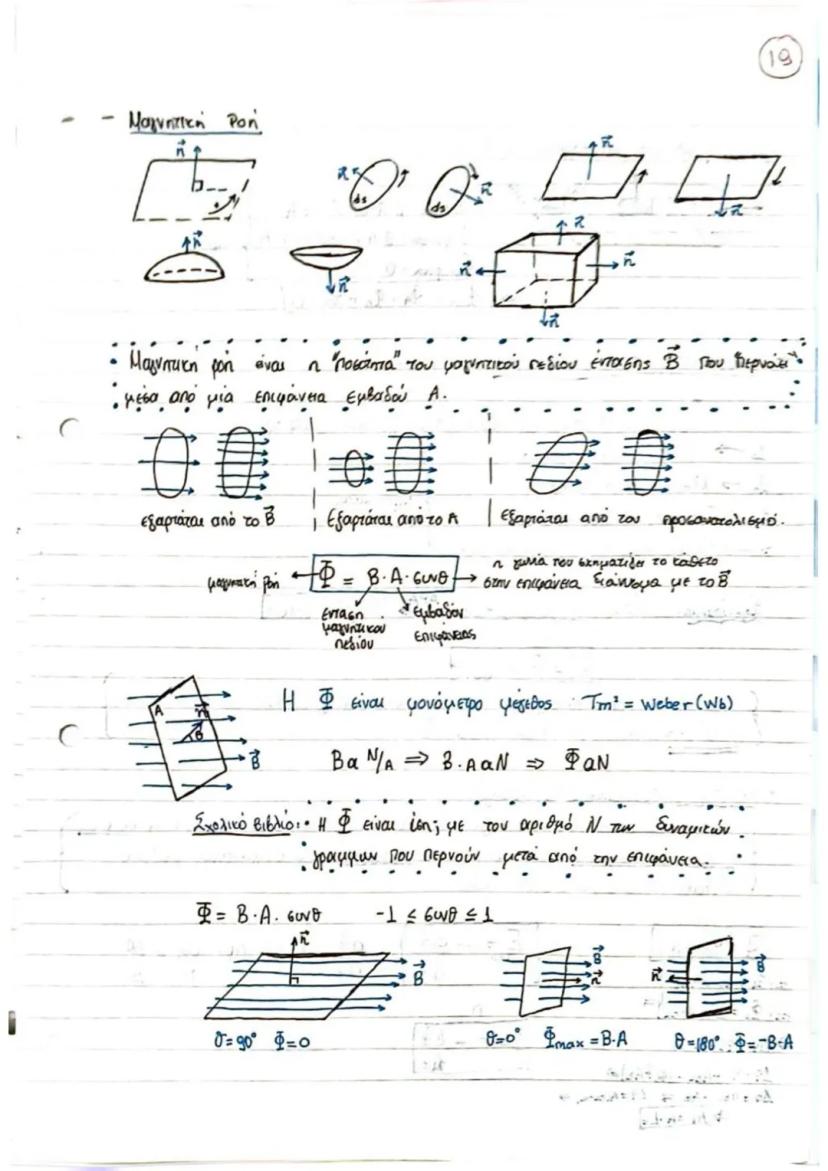 19
- - Μαγνητική Ροή
n
n ds ds n
n n
n n
n n n n
• Μαγνητική ροή είναι η "ποσότητα" του μαγνητικού πεδίου έντασης B που περνάει
μέσα από μία επιφάνεια εμβαδού A.
εξαρτάται από το B | Εξαρτάται από το A | Εξαρτάται από τον προσανατολισμό.
μαγνητική ροή ← Φ = B·A·συνθ → η γωνία που σχηματίζει το κάθετο
στην επιφάνεια διάνυσμα με το B
ένταση μαγνητικού πεδίου
εμβαδόν επιφάνειας
A n θ B
Η Φ είναι μονόμετρο μέγεθος Tm² = Weber (Wb)
B α N/A ⇒ B·A α N ⇒ Φ α N
Σχολικό βιβλίο: • Η Φ είναι ίση; με τον αριθμό N των δυναμικών
γραμμων που περνούν μετά από την επιφάνεια.
Φ = B·A·συνθ -1 ≤ συνθ ≤ 1
n B B n n B
θ=90° Φ=0 θ=0° Φmax = B·A θ=180° Φ=-B·A